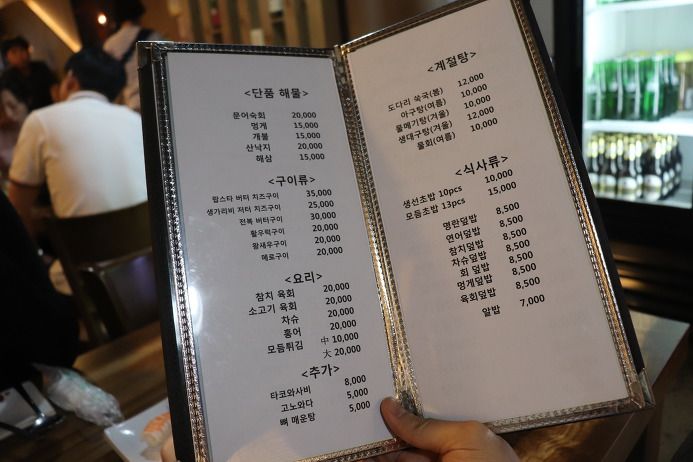 <단품 해물>
문어숙회 20,000
멍게 15,000
개불 15,000
산낙지 20,000
해삼 15,000
<구이류>
랍스타 버터 치즈구이 35,000
생가리비 저터 치즈구이 25,000
전복 버터구이 30,000
활우럭구이 20,000
왕새우구이 20,000
메로구이 20,000
<요리>
참치 육회 20,000
소고기 육회 20,000
차슈 20,000
홍어 20,000
모듬튀김 中 10,000
大 20,000
<추가>
타코와사비 8,000
고노와다 5,000
뼈 매운탕 5,000
<계절탕>
도다리 쑥국(봄) 12,000
아구탕(여름) 10,000
물메기탕(겨울) 10,000
생대구탕(겨울) 12,000
물회(여름) 10,000
<식사류>
생선초밥 10pcs 10,000
모듬초밥 13pcs 15,000
명란덮밥 8,500
연어덮밥 8,500
참치덮밥 8,500
차슈덮밥 8,500
회 덮밥 8,500
멍게덮밥 8,500
육회덮밥 8,500
알밥 7,000